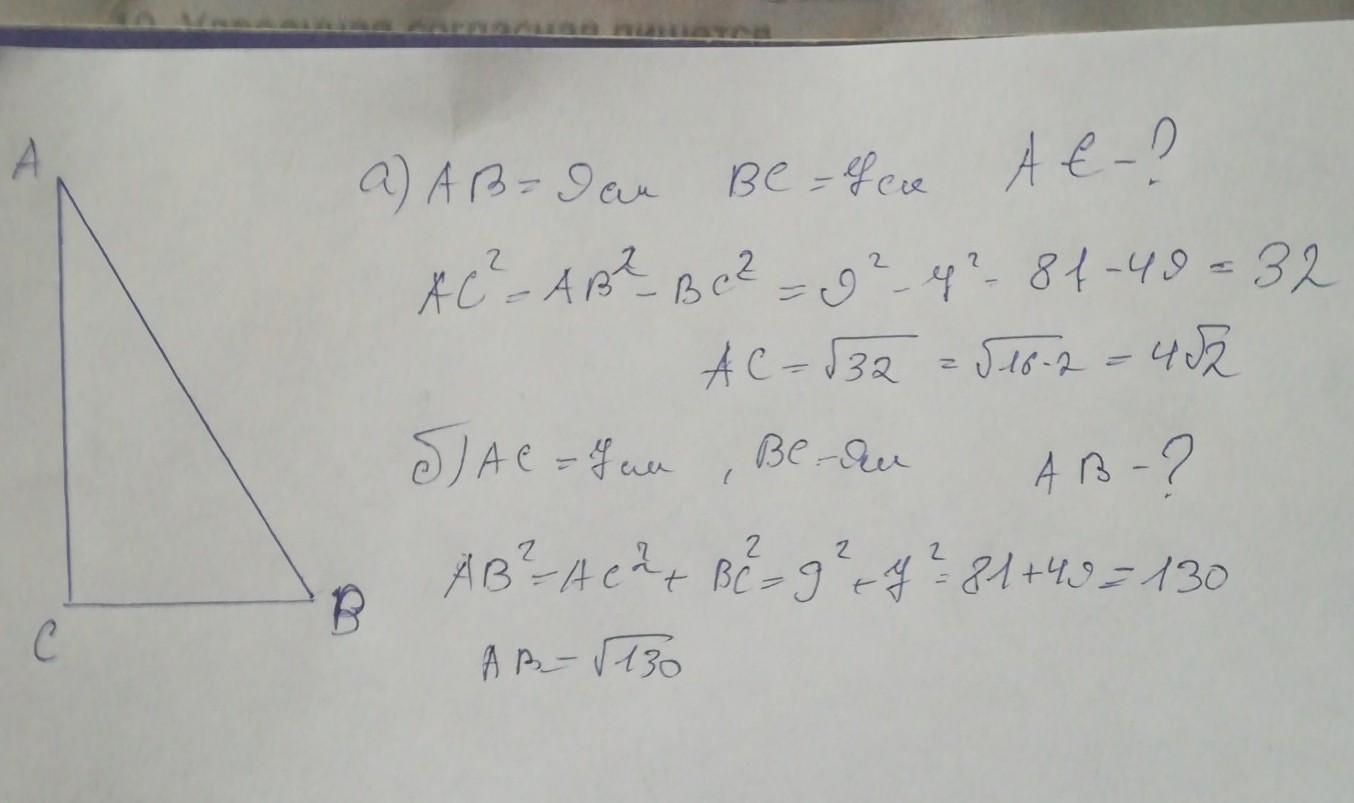 10. Удвоенная согласная пишется
A
а) AB = 9 см BC = 7 см AC - ?
AC² = AB² - BC² = 9² - 7² = 81 - 49 = 32
AC = √32 = √16·2 = 4√2
б) AC = 7 см , BC = 9 см AB - ?
AB² = AC² + BC² = 9² + 7² = 81 + 49 = 130
C
B
AB = √130